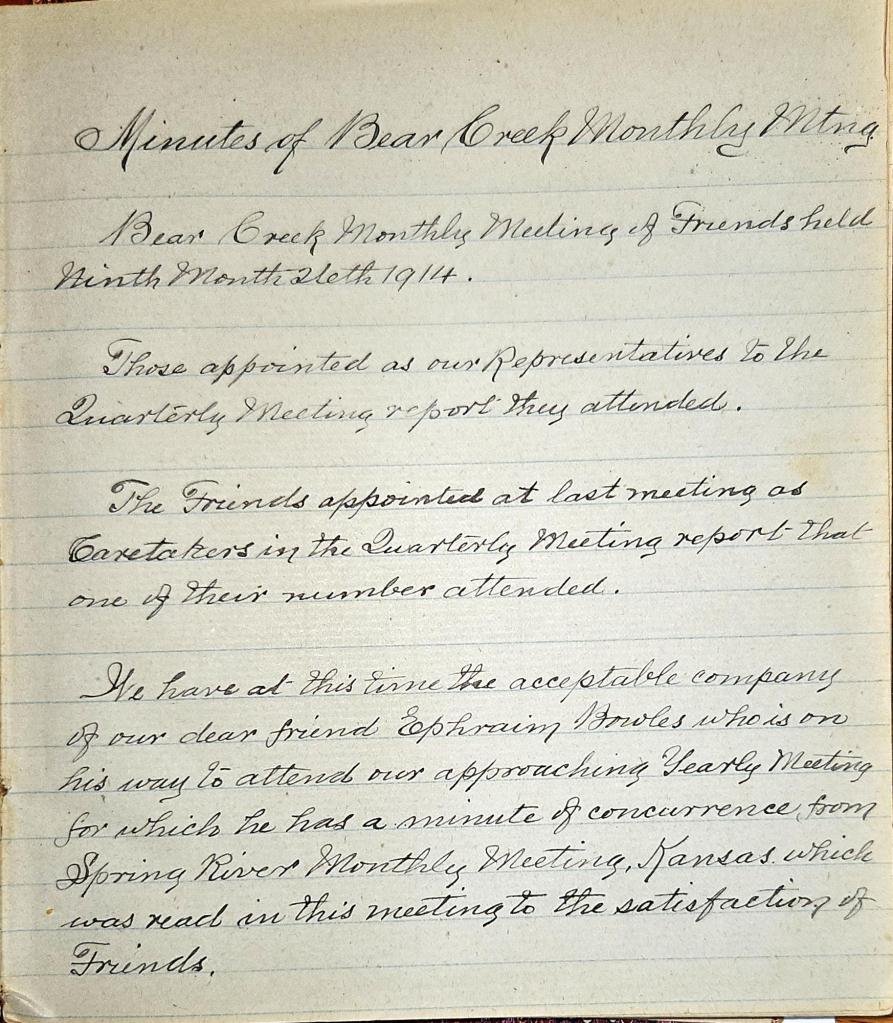 Minutes of Bear Creek Monthly Mtng.
Bear Creek Monthly Meeting of Friends held
Ninth Month 26th 1914.
Those appointed as our Representatives to the
Quarterly Meeting report they attended.
The Friends appointed at last meeting as
Caretakers in the Quarterly Meeting report that
one of their number attended.
We have at this time the acceptable company
of our dear friend Ephraim Bowles who is on
his way to attend our approaching Yearly Meeting
for which he has a minute of concurrence, from
Spring River Monthly Meeting, Kansas. which
was read in this meeting to the satisfaction of
Friends.